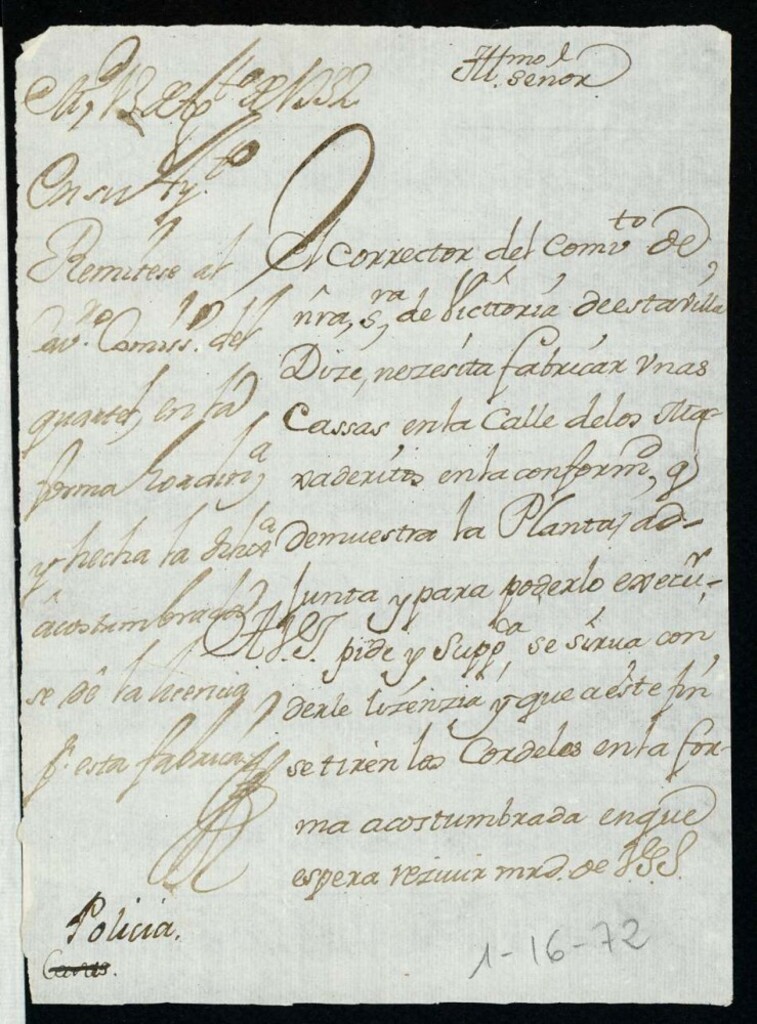 Illmo. Señor
Md. 13 de Agto. de 1732
En su Ayto.
Remitese al
Cavro. Comisso. del
quartel, en la
forma hordina.
y hecha la diliga.
acostumbrada
se de la licencia
pa. esta fabrica
El Corrector del Comvto. de
nra. sra. de Victtoria de esta villa
Dize, nezesita fabricar vnas
Cassas en la Calle de los
vaderitos en la conformd. q
demuestra la Planta, ad-
Junta y para poderlo execu-
A V.S.I. pide y Suppca. se sirua con
derle lizenzia y que a este fin
se tiren los Cordeles en la for-
ma acostumbrada en que
espera rezivir mrd. de VSI.
Policia.
Casas.
1-16-72